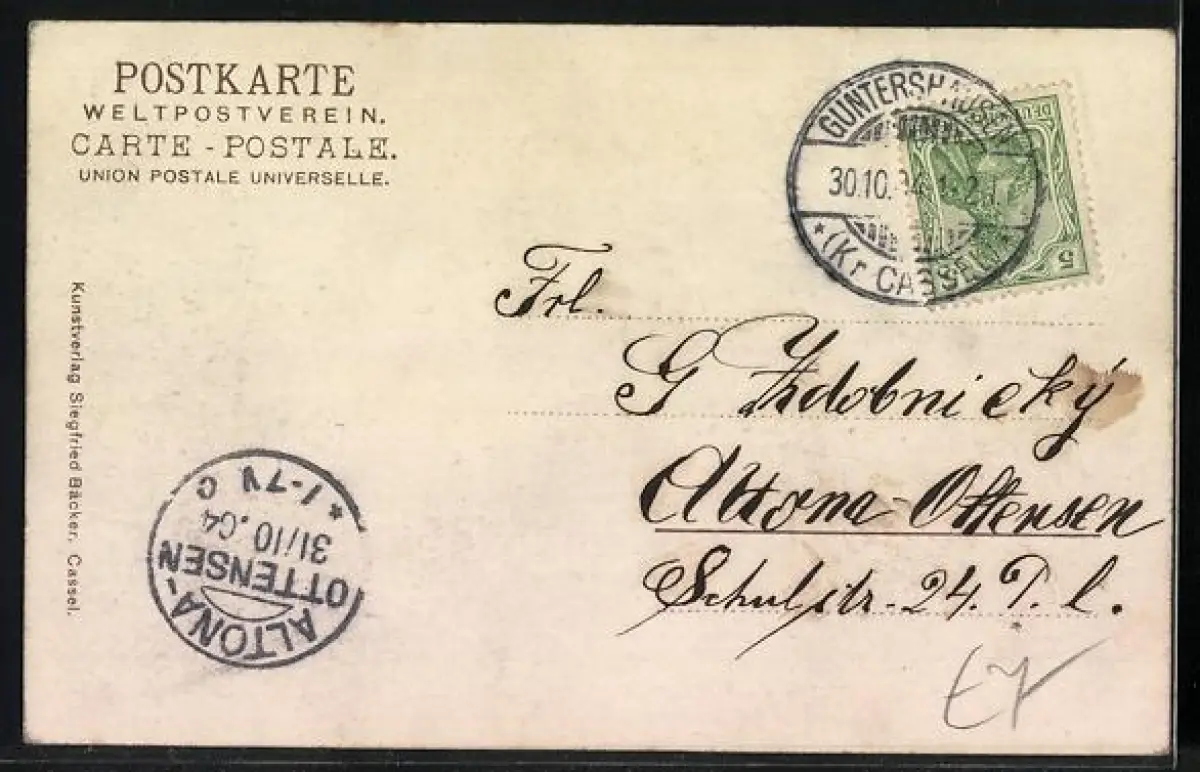 POSTKARTE
WELTPOSTVEREIN.
CARTE - POSTALE.
UNION POSTALE UNIVERSELLE.
GUNTERSHAUSEN
30.10.04. 1-2
*(Kr CASSEL)*
5
Frl.
G Zdobnický
Altona-Ottensen
Schulstr. 24. P. l.
Kunstverlag Siegfried Bäcker, Cassel.
ALTONA-
OTTENSEN
31/10.04
*1-7V
C